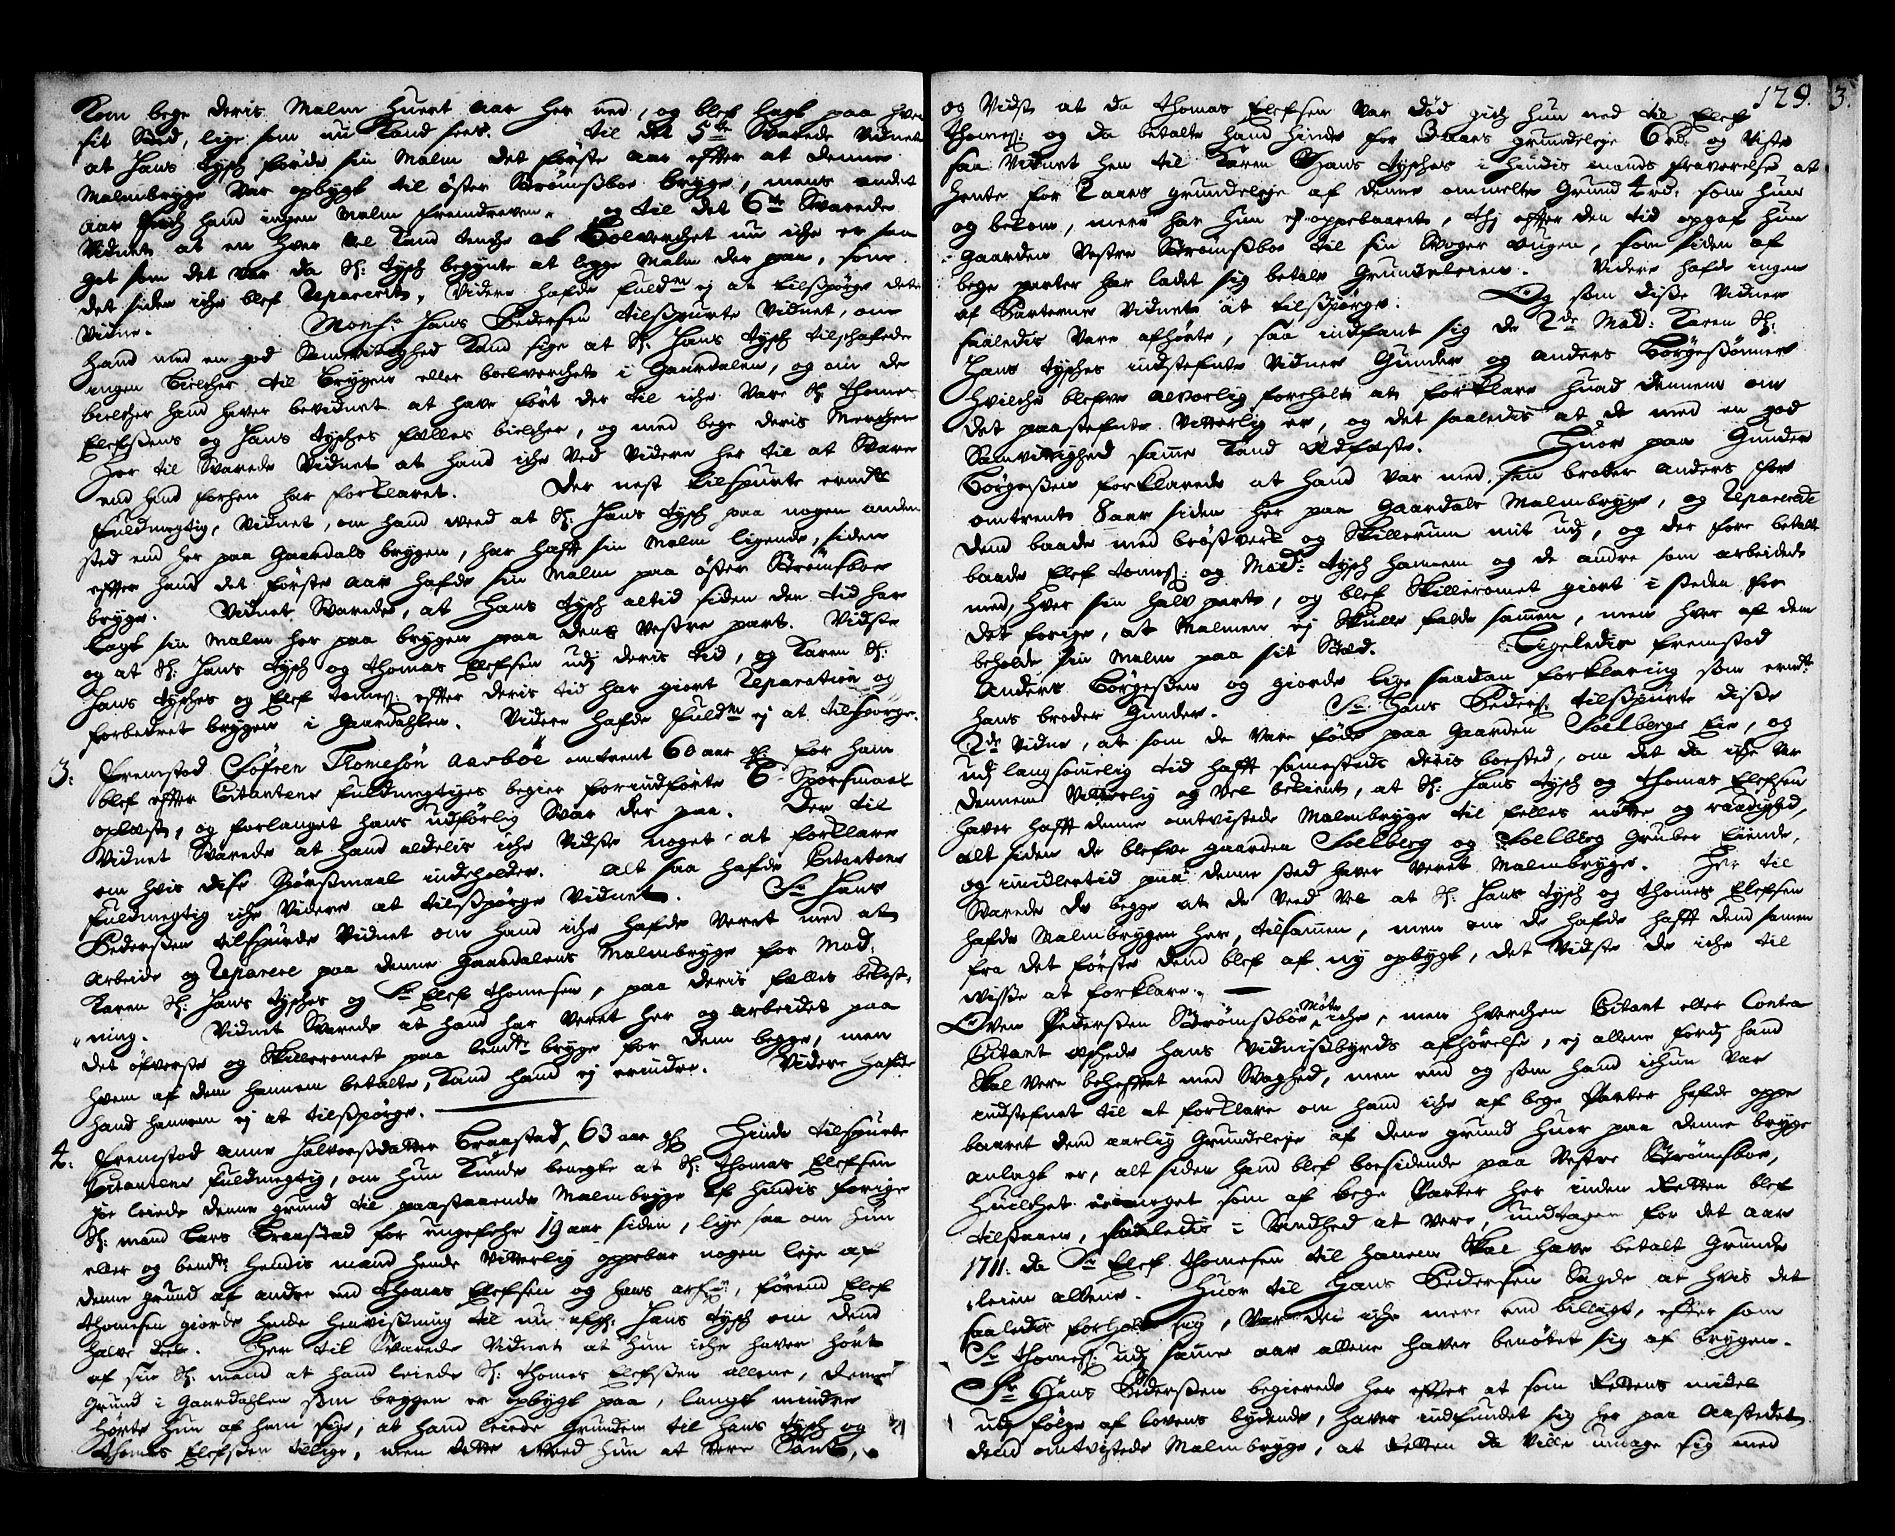 Kom bege deris Malm huert aar her ned, og blef lagt paa hver
sit Sted, lige som nu Kand sees. til det 5te Svarede Vidnet
at Hans Tysch førde sin Malm det første aar efter at denne
Malmbrygge var opbygt til øster Strømsboe brygge, mens andet
aar fich hand ingen Malm fremdreven. og til det 6te Svarede
Vidnet at en hver vel kand tenche at Bolverchet nu iche er saa
got som det var da Sl: Tysch begynte at legge Malm der paa, som
det siden iche blef Repareret. Videre hafde fuldm ej at tilspørge dette
Vidne. Monsr Hans Pedersen tilspurte Vidnet, om
hand med en god Samvitighed kand sige at Sl: Hans Tysch tilschafede
ingen bielcher til bryggen eller boelverchet i Gaardalen, og om de
bielcher hand haver bevidnet at have ført der til iche vare Sl: Thomes
Elefsens og Hans Tysches fælles bielcher, og med bege deris Mercher
her til Svarede Vidnet at hand iche ved videre her til at Svare
end hand forhen har forklaret. Der nest tilspurte ermdte
fuldmegtig, Vidnet, om hand veed at Sl: Hans Tysch paa nogen anden
sted end her paa Gaardals bryggen, har hafft sin Malm ligende, siden
efter hand det første aar hafde sin Malm paa øster Strømsboe
brygge. Vidnet Svarede, at Hans Tysch altid siden den tid har
lagt sin Malm her paa bryggen paa dens Vestre part. Vidste
og at Sl: Hans Tysch og Thomas Elefsen udj deris tid, og Karen Sl:
Hans Tysches og Elef Tomes: efter deris tid har giort Reparation og
forbedret bryggen i Gaardahlen. Videre hafde fuldm ej at tilspørge.
3: Fremstod Søfren Thomesøn Aarboe omtrent 60 aar gl for ham
blef efter Citantens fuldmegtiges begier forindførte 6 Spørsmaal
oplæst, og forlanget hans udførlig Svar der paa. Der til
Vidnet Svarede at hand aldelis iche vidste noget at forklare
om hvis dise Spørsmaal indeholder. Alt saa hafde Citantens
fuldmegtig iche videre at tilspørge Vidnet. Sr Hans
Pedersen tilspurde Vidnet om hand iche hafde veret med at
arbeide og Reparere paa denne Gaardalens Malmbrygge for Mad:
Karen Sl: Hans Tysches og Sr Elef Thomesen, paa deris fælles bekost-
ning. Vidnet Svarede at hand har veret her og arbeidet paa
det øfverste og Skillerommet paa bemte brygge for dem begge, men
hvem af dem hannem betalte, kand hand ej erindre. Videre hafde
hand hannem ej at tilspørge.
4: Fremstod Anne Halvorsdatter Braastad, 63 aar gl hinde tilspurte
Citantens fuldmegtig, om hun kunde benegte at Sl: Thomas Elefsen
jo leiede denne grund til paastaaende Malmbrygge af hindis forige
Sl: mand Lars Braastad for ungefehr 19 aar siden, lige saa om hun
eller og bemte hendis mand hende vitterlig oppebar nogen leje af
denne grund af andre end Thomas Elefsen og hans arfg, førend Elef
Thomesen giorde hende henvisning til nu afg: Hans Tysch om dend
halve deel. Her til Svarede Vidnet at hun iche haver hørt
af sin Sl: mand at hand leiede Sl: Thomes Elefsen allene, denne
grund i Gaardahlen som bryggen er opbygt paa, langt mindre
hørte hun af ham sige, at hand leiede Grunden til Hans Tysch og
Thomes Elefsen tillige, men dette veed hun at vere Sant,
129. 3.
og Vidste at da Thomas Elefsen var død gich hun ned til Elef
Thomes: og da betalte hand hinde for 3 aars grundeleje 6 rd: og viste
saa Vidnet hen til Karen Hans Tysches i hindis mands fraverelse at
hente for 2 aars grundeleje af denne ommelte Grund 4 rd: som hun
og bekom, mere har hun ej oppebaaret, thj efter den tid opgaf hun
Gaarden Vestre Strømsboe til sin Svoger Augen, som siden af
bege parter har ladet sig betale Grundeleien. Videre hafde ingen
af Parterne Vidnet at tilspørge. Og som diße Vidner
saaledis vare afhørte, saa indfant sig de 2de Mad: Karen Sl:
Hans Tysches indstefnte Vidner Gunder og Anders Børgesønner
hvilche blefve alvorlig foreholt at forklare huad dennem om
det paastefnte vitterlig er, og det saaledis at de med en god
Samvittighed samme kand Edfæste. Huor paa Gunder
Børgesen forklarede at hand var med sin broder Anders for
omtrent 8 aar siden her paa Gaardals Malmbrygge, og Reparerede
dend baade med brøstverk og Skillerum mit udj, og der fore betalte
baade Elef Tomes: og Mad: Tysch hannem og de andre som arbeidede
med, hver sin halv parte, og blef Skillerommet giort i steden for
det forige, at Malmen ej Skulle falde sammen, men hver af dem
beholde sin Malm paa sit Sted. Ligeledis fremstod
Anders Børgesen og giorde lige saadan forklaring som ermte
hans broder Gunder. Sr Hans Peders: tilspurte diße
2de Vidne, at som de vare føde paa Gaarden Solberg Eie, og
udj langsommelig tid hafft sammesteds deris boested, om det da iche er
dennem vitterlig og vel bekient, at Sl: Hans Tysch og Thomas Elefsen
haver hafft denne omtvistede Malmbrygge til felles nötte og raadighed,
alt siden de blefve gaarden Solberg og Solberg Gruber Eiende,
og imidlertid paa denne sted haver veret Malmbrygge. Her til
Svarede de begge at de veed vel at Sl: Hans Tysch og Thomes Elefsen
hafde Malmbryggen her, tilsammen, men om de hafde hafft dend sammen
fra det første dend blef af ny opbygt, det vidste de iche til
visse at forklare.
Ofven Pedersen Strømsboe Møtte iche, men hverchen Citant eller Contra
Citant æschede hans Vidnisbyrds afhørelse, ej allene fordj hand
Skal vere behefftet med Svaghed, men end og som hand ichun var
indstefnet til at forklare om hand iche af bege Parter hafde oppe
baaret dend aarlig Grundeleje af denne grund huor paa denne brygge
anlagt er, alt siden hand blef boesidende paa Vestre Strømsboe,
huilchet som af bege Parter her inden Retten blef
tilstaaen, saaledis i Sandhed at vere, undtagen for det aar
1711. da Sr Elef Thomesen til hannem Skal have betalt Grunde
leien allene. Huor til Hans Pedersen Sagde at hvis det
saaledis forholt sig, var det iche mere end billigt, efter som
Sr Thomes: udj samme aar allene haver benøttet sig af bryggen.
Sr Hans Pedersen begierede her efter at som Rettens midel
udj følge af lovens bydende, haver indfundet sig her paa Aastedet
dend omtvistede Malmbrygge, at Retten da ville umage sig med